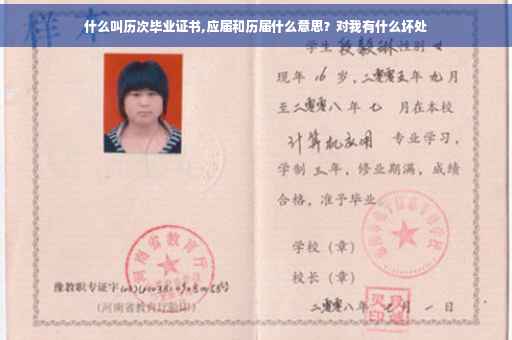 什么叫历次毕业证书,应届和历届什么意思？对我有什么坏处
样本
学生段毅琳性别女
现年16岁,二零零五年九月
至二零零八年七月在本校
计算机应用专业学习，
学制三年，修业期满，成绩
合格，准予毕业
河南省教育厅
学校（章）
校长（章）
豫教职专证字
(河南省教育厅验印)
二零零八年七月一日